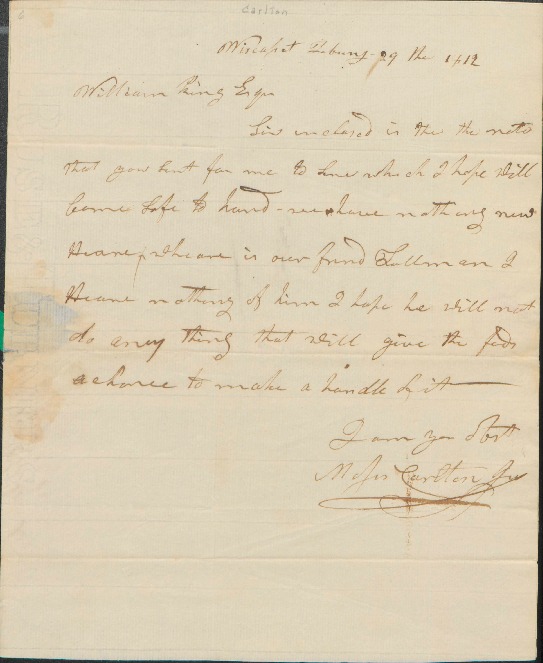 Carlton
Wiscaset Febury 29 the 1812
William King Esqr
Sir inclosed is the the note
that you sent for me to sine which I hope will
Come Safe to hand - we have nothing new
Heare wheare is our frind Tallman I
Heare nothing of him I hope he will not
do aney thing that will give the feds
a chance to make a handle of it
I am you Obst
Moses Carlton Jn